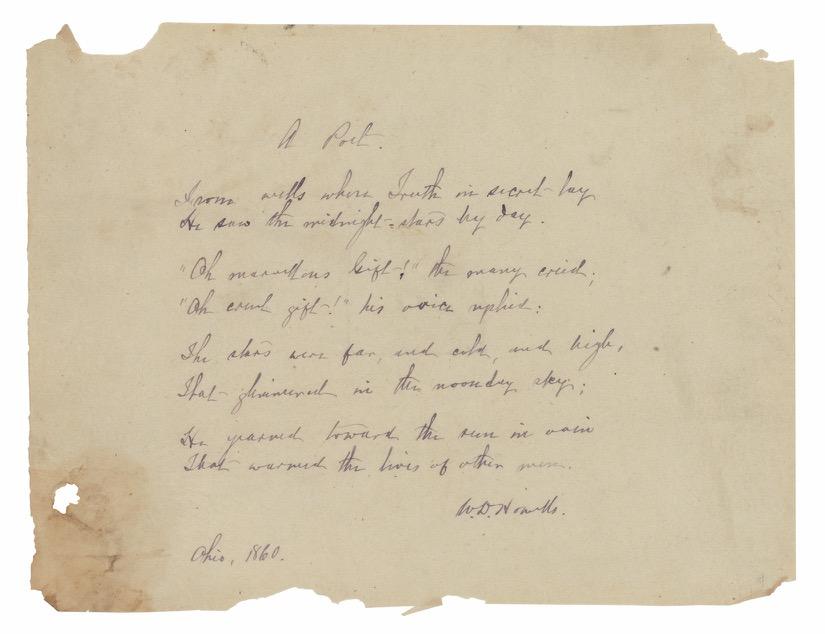 A Poet.
From wells where Truth in secret lay
He saw the midnight-stars by day.
"Oh marvellous Gift!" the many cried;
"Oh cruel gift!" his voice replied.
The stars were far, and cold, and high,
That glimmered in the noonday sky;
He yearned toward the sun in vain
That warmed the lives of other men.
W.D. Howells.
Ohio, 1860.